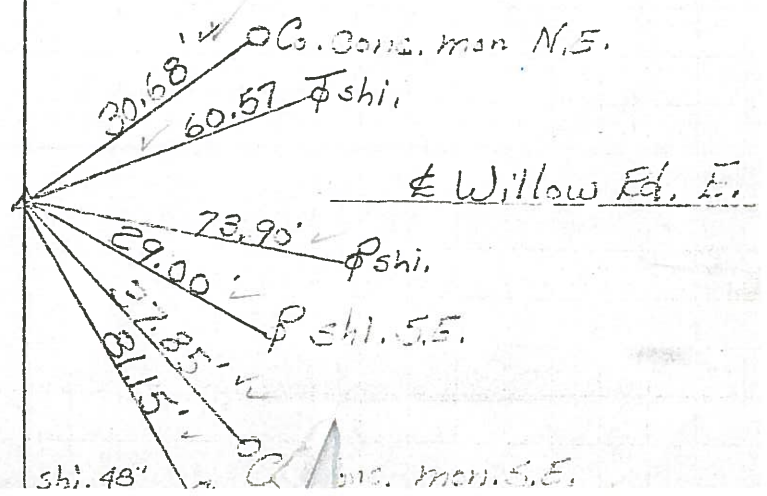 30.68' Co. Conc. mon N.E.
60.57 shi.
℄ Willow Rd. E.
73.90' shi.
29.00' shi. S.E.
27.85' Co. Conc. mon. S.E.
81.15'
shi. 48"